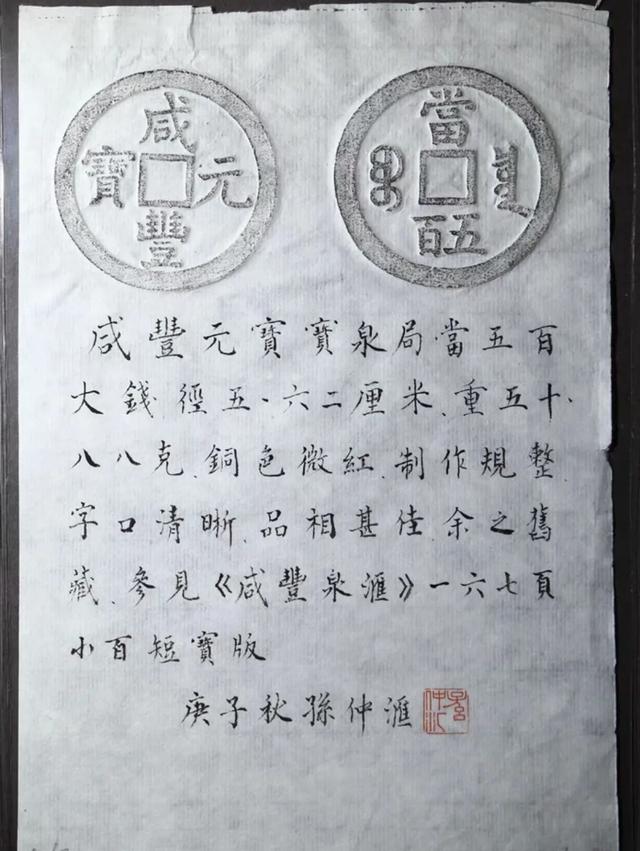 咸豐元寶
當五百
咸豐元寶寶泉局當五百
大錢徑五、六二厘米、重五十、
八八克、銅色微紅、制作規整、
字口清晰、品相甚佳、余之舊
藏、參見《咸豐泉滙》一六七頁
小百短寶版
庚子秋孫仲滙